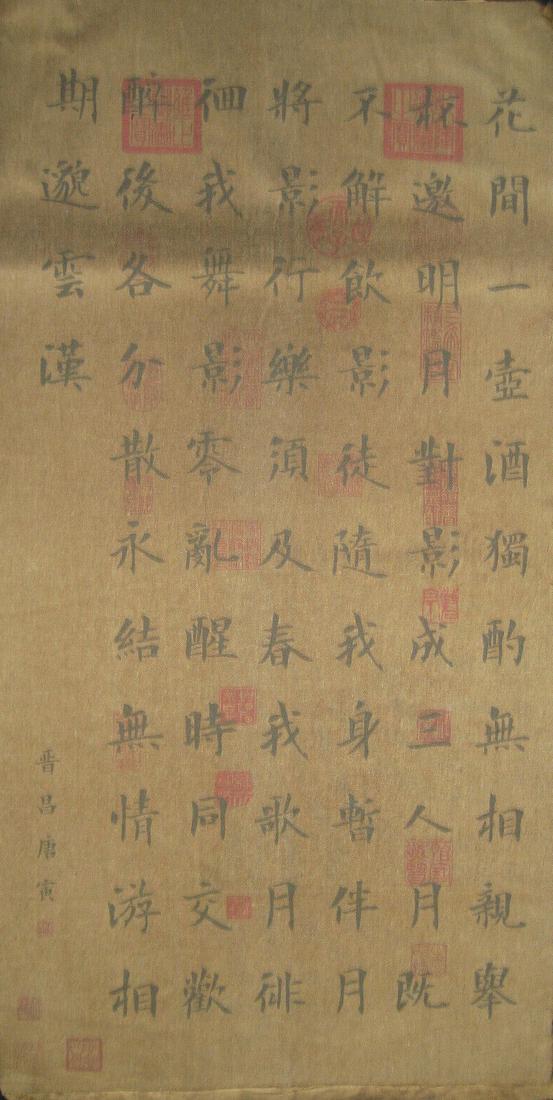 花間一壺酒獨酌無相親舉
杯邀明月對影成三人月既
不解飲影徒隨我身暫伴月
將影行樂須及春我歌月徘
徊我舞影零亂醒時同交歡
醉後各分散永結無情游相
期邈雲漢
晉昌唐寅